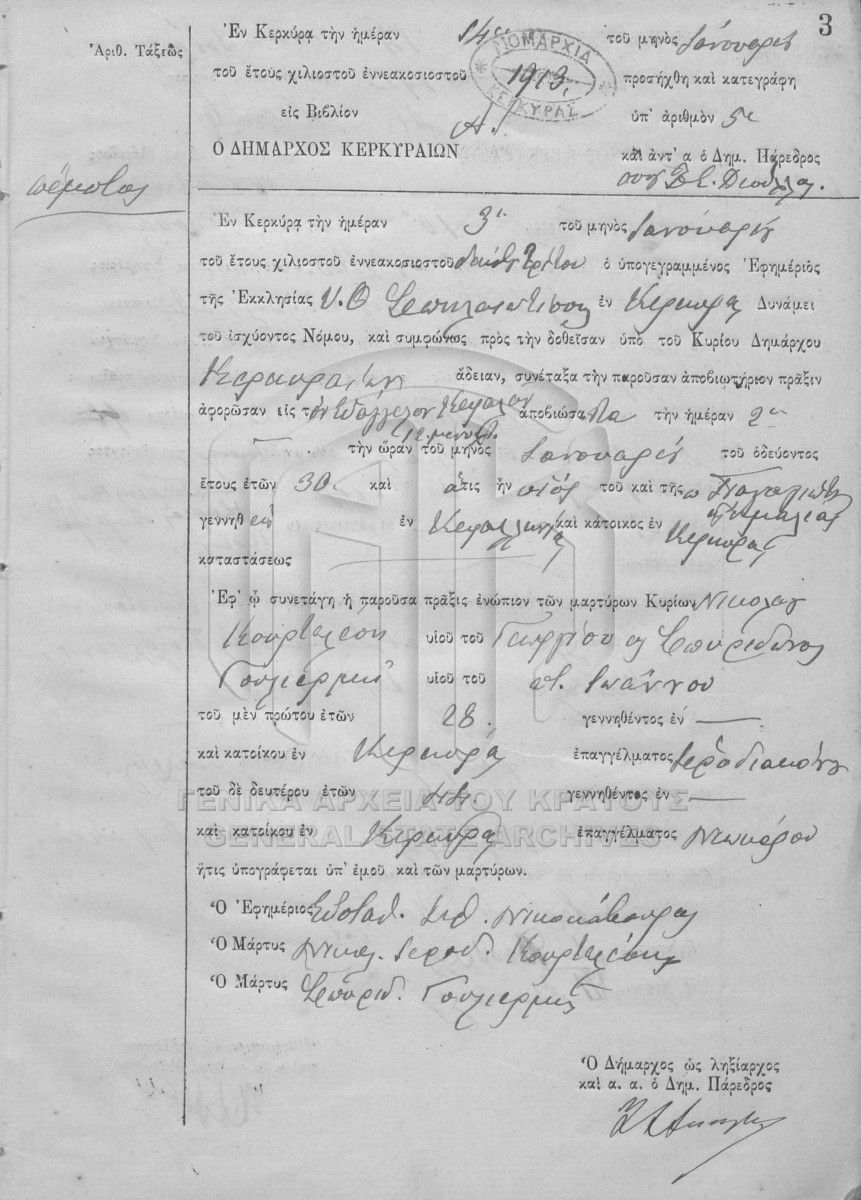 3
Ἀριθ. Τάξεως
Ἐν Κερκύρᾳ τὴν ἡμέραν 14ην τοῦ μηνὸς Ἰανουαρίου
τοῦ ἔτους χιλιοστοῦ ἐννεακοσιοστοῦ 1913, προσήχθη καὶ κατεγράφη
ΔΗΜΑΡΧΙΑ ΚΕΡΚΥΡΑΣ
εἰς Βιβλίον Α. ὑπ' ἀριθμὸν 5
Ο ΔΗΜΑΡΧΟΣ ΚΕΡΚΥΡΑΙΩΝ καὶ ἀντ' α ὁ Δημ. Πάρεδρος
πέμπτος
Ἐν Κερκύρᾳ τὴν ἡμέραν 3ην τοῦ μηνὸς Ἰανουαρίου
τοῦ ἔτους χιλιοστοῦ ἐννεακοσιοστοῦ δεκάτου τρίτου ὁ ὑπογεγραμμένος Ἐφημέριος
τῆς Ἐκκλησίας Υ. Θ Σπηλαιωτίσσης ἐν Κερκύρᾳ Δυνάμει
τοῦ ἰσχύοντος Νόμου, καὶ συμφώνως πρὸς τὴν δοθεῖσαν ὑπὸ τοῦ Κυρίου Δημάρχου
Κερκυραίων ἄδειαν, συνέταξα τὴν παροῦσαν ἀποβιωτήριον πρᾶξιν
ἀφορῶσαν εἰς τὸν Εὐάγγελον ἀποβιώσαντα τὴν ἡμέραν 2αν
τὴν ὥραν 12 τοῦ μηνὸς Ἰανουαρίου τοῦ ὁδεύοντος
ἔτους ἐτῶν 30. καὶ ὅστις ἦν υἱὸς τοῦ καὶ τῆς Παναγιώτου
Ἀμαλίας
γεννηθεὶς ἐν Κεφαλληνίᾳ καὶ κάτοικος ἐν Κερκύρᾳ
καταστάσεως
Ἐφ' ᾧ συνετάγη ἡ παροῦσα πρᾶξις ἐνώπιον τῶν μαρτύρων Κυρίων Νικολάου
Κουρτελέση υἱοῦ τοῦ Γεωργίου κ Σπυρίδωνος
Γουλιέρμη υἱοῦ τοῦ Ἰωάννου
τοῦ μὲν πρώτου ἐτῶν 28. γεννηθέντος ἐν —
καὶ κατοίκου ἐν Κερκύρᾳ ἐπαγγέλματος ἱεροδιακόνου
τοῦ δὲ δευτέρου ἐτῶν 44 γεννηθέντος ἐν —
καὶ κατοίκου ἐν Κερκύρᾳ ἐπαγγέλματος νεωκόρου
ἥτις ὑπογράφεται ὑπ' ἐμοῦ καὶ τῶν μαρτύρων.
Ὁ Ἐφημέριος Εὐσταθ.
Ὁ Μάρτυς Νικολ. Ἱεροδ. Κουρτελέσης
Ὁ Μάρτυς Σπυρίδ. Γουλιέρμης
Ὁ Δήμαρχος ὡς ληξίαρχος
καὶ α. α. ὁ Δημ. Πάρεδρος
ΓΕΝΙΚΑ ΑΡΧΕΙΑ ΤΟΥ ΚΡΑΤΟΥΣ
GENERAL STATE ARCHIVES